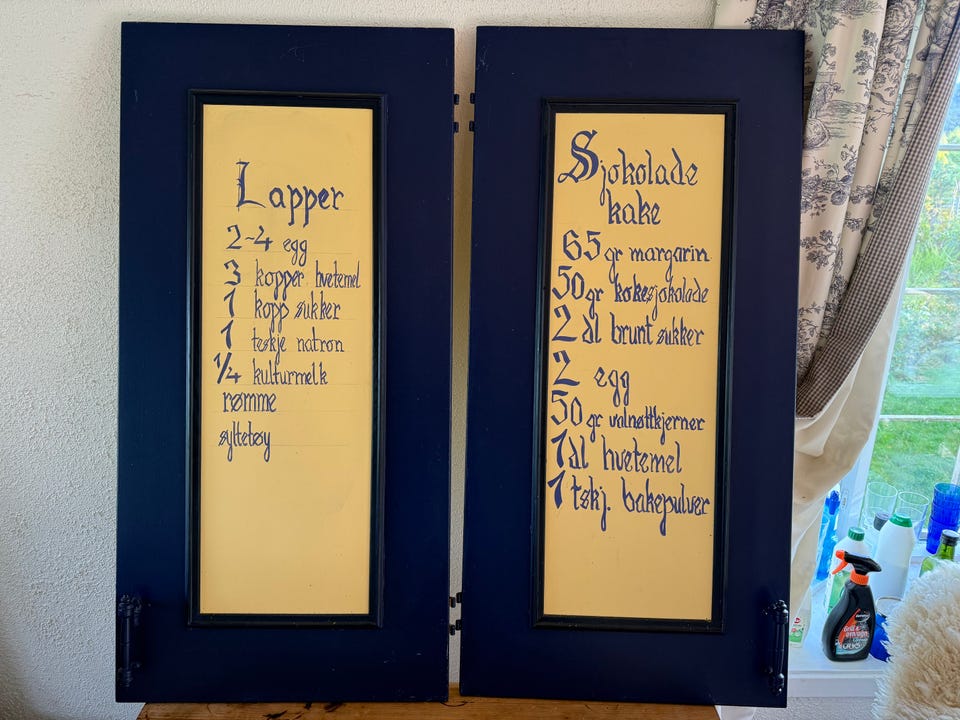 Lapper
2-4 egg
3 kopper hvetemel
1 kopp sukker
1 teskje natron
1/4 kulturmelk
rømme
syltetøy
Sjokolade
kake
65 gr margarin
50 gr kokesjokolade
2 dl brunt sukker
2 egg
50 gr valnøttkjerner
1 dl hvetemel
1 tskj. bakepulver